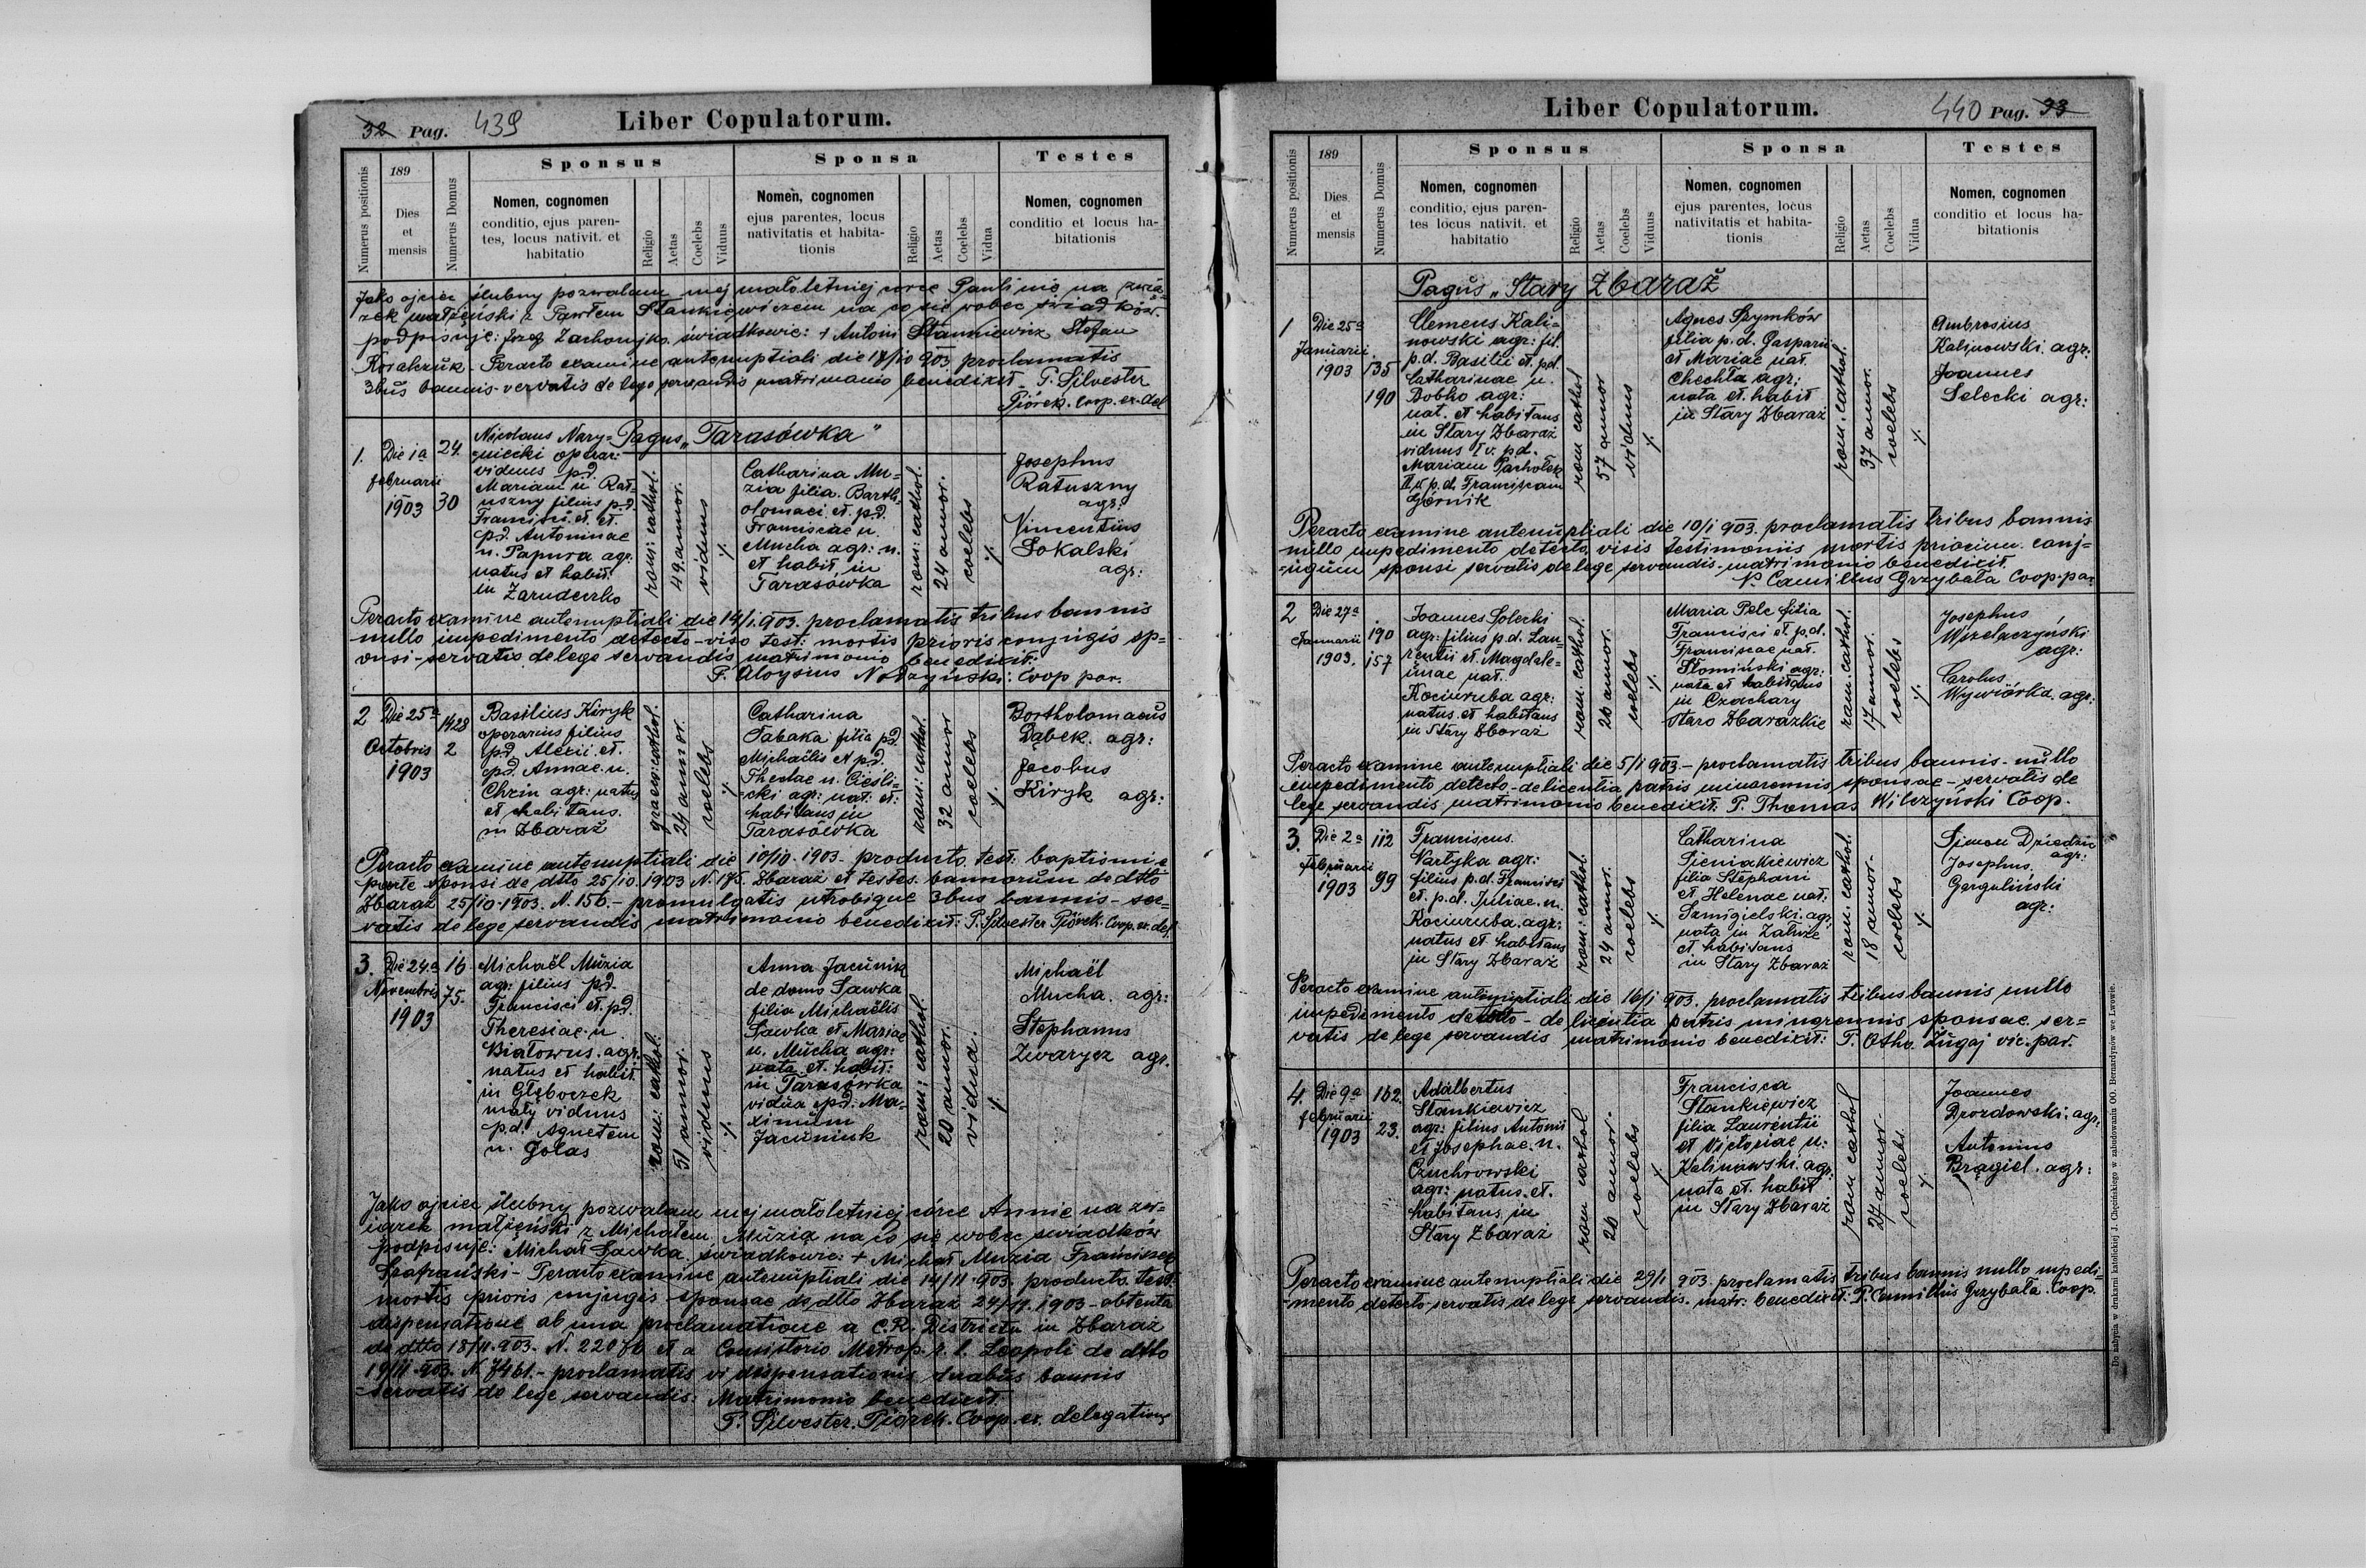 32 Pag. 439
Liber Copulatorum.
Numerus positionis
189
Dies
et
mensis
Numerus Domus
Sponsus
Nomen, cognomen
conditio, ejus paren-
tes, locus nativit. et
habitatio
Religio
Aetas
Coelebs
Viduus
Sponsa
Nomen, cognomen
ejus parentes, locus
nativitatis et habita-
tionis
Religio
Aetas
Coelebs
Vidua
Testes
Nomen, cognomen
conditio et locus ha-
bitationis
Jako ojciec ślubny pozwalam mej małoletniej córce Paulinie na zwią-
zek małżeński z Pawłem Stankiewiczem na co się wobec świadków
podpisuję: Józef świadkowie: + Antoni Stankiewicz Stefan
Peracto examine antenuptiali die 17/10 903 proclamatis
3bus bannis servatis de lege servandis matrimonio benedixit P. Silvester
Piórek. Coop. ex. del
Pagus „Tarasówka"
1.
Die 1a
februarii
1903
24.
30
Nicolaus Nary-
operar:
viduus p.d.
Mariam u Rat-
uszny filius p.d.
Francisci et et.
p.d. Antoninae
n. Papura agr.
natus et habit.
in Zarudeczko
rom: cathol.
49. annor.
viduus
Catharina Mu-
zia filia Barth-
olomaei et p.d.
Franciscae n.
Mucha agr: n.
et habit. in
Tarasówka
rom: cathol.
24 annor.
coelebs
Josephus
Ratuszny
agr:
Vincentius
Sokalski
agr:
Peracto examine antenuptiali die 14/1.903. proclamatis tribus bannis
nullo impedimento detecto - viso test: mortis prioris conjugis sp-
onsi - servatis de lege servandis matrimonio benedixit:
P. Aloysius Nodzyński: Coop par.
2
Die 25a
Octobris
1903
1428
2
Basilius Kiryk
operarius filius
p.d. Alexii et.
p.d. Annae. n.
Chrin agr: natus
et habitans.
in Zbaraż
graec: cathol.
24 annor.
coelebs
Catharina
Sabaka filia p.d.
Michaëlis et p.d.
Theclae n. Cieśli-
cki agr: nat: et:
habitans in
Tarasówka
rom: cathol.
32 annor
coelebs
Bartholomaeus
Dąbek. agr:
Jacobus
Kiryk agr:
Peracto examine antenuptiali die 10/10. 1903 - producto test: baptismi e
parte sponsi de dtto 25/10. 1903 N. 175. Zbaraż et testes. bannorum de dtto
Zbaraż 25/10.1903. N. 156. - promulgatis utrobique 3bus bannis - ser-
vatis de lege servandis matrimonio benedixit: P. Silvester Piórek. Coop. ex. del.
3.
Die 24.a
Novembris
1903
16
75.
Michaël Muzia
agr: filius p.d.
Francisci et p.d.
Theresiae. n
Białowus. agr.
natus et habit.
in Głęboczek
mały viduus
p.d. Agnetem
n. Golas
rom: cathol.
51 annor.
viduus
Anna Jacuniuk
de domo Sawka
filia Michaëlis
Sawka et Mariae
n. Mucha agr:
nata et. habit:
in Tarasówka
vidua p.d: Ma-
ximum
Jacuniuk
rom: cathol.
20 annor.
vidua.
Michaël
Mucha. agr:
Stephanus
Zwarycz agr.
Jako ojciec ślubny pozwalam mej małoletniej córce Annie na zw-
iązek małżeński z Michałem Muzią na co się wobec świadków
podpisuję: Michał Sawka świadkowie: + Michał Muzia Franciszek
Szafrański - Peracto examine antenuptiali die 14/11.903. producto. test:
mortis prioris conjugis sponsae de dtto Zbaraż 24/11. 1903 - obtenta
dispensatione ab una proclamatione a C.R. Districtu in Zbaraż
de dtto 18/11.903. N. 22076 et a Consistorio Metrop. r. l. Leopoli de dtto
19/11.903. N. 7461. - proclamatis vi dispensationis duabus bannis
servatis de lege servandis: Matrimonio benedixit
P. Silvester. Piórek. Coop. ex. delegatione
Liber Copulatorum.
440 Pag. 33
Numerus positionis
189
Dies
et
mensis
Numerus Domus
Sponsus
Nomen, cognomen
conditio, ejus paren-
tes locus nativit. et
habitatio
Religio
Aetas
Coelebs
Viduus
Sponsa
Nomen, cognomen
ejus parentes, locus
nativitatis et habita-
tionis
Religio
Aetas
Coelebs
Vidua
Testes
Nomen, cognomen
conditio et locus ha-
bitationis
Pagus „Stary Zbaraż
1
Die 25a
Januarii
1903
135
190
Clemens Kali-
nowski agr: fil.
p.d. Basilii et. p.d.
Catharinae n.
Bobko agr:
nat. et habitans
in Stary Zbaraż
viduus I v. p.d.
Mariam Parholek
II v. p.d. Franciscam
Górnik
rom cathol.
57 annor
viduus
Agnes Szymków
filia p.d. Gasparii
et Mariae nat.
Chechła agr:
nata et. habit
in Stary Zbaraż
rom. cathol.
37 annor.
coelebs
Ambrosius
Kalinowski. agr:
Joannes
Selecki agr:
Peracto examine antenuptiali die 10/1 903. proclamatis tribus bannis
nullo impedimento detecto visis testimoniis mortis priorum. conj-
ugum sponsi servatis de lege servandis matrimonio benedixit
P. Camillus Grzybała Coop. par
2
Die 27a
Januarii
1903.
190
157
Joannes Solecki
agr: filius p.d. Lau-
rentii et. Magdale-
nae nat.
Kociuruba agr:
natus. et habitans
in Stary Zbaraż
rom. cathol.
26 annor.
coelebs
Maria Pelc filia
Francisci et p.d.
Franciscae nat.
Słomiński agr:
nata et habitans
in Czachary
staro Zbarazkie
rom. cathol.
17 annor.
coelebs
Josephus
Wszelaczyński
agr:
Carolus
Wywiórka. agr:
Peracto examine antenuptiali die 5/1 903 - proclamatis tribus bannis - nullo
impedimento detecto - de licentia patris minorennis sponsae - servatis de
lege servandis matrimonio benedixit: P. Thomas Wilczyński Coop.
3.
Die 2a
Februarii
1903
112
99
Franciscus.
Wartyka agr:
filius p.d. Francisci
et. p.d. Juliae. n.
Kociuruba. agr:
natus et habitans
in Stary Zbaraż
rom: cathol
24 annor.
coelebs
Catharina
Sieniakiewicz
filia Stephani
et Helenae nat:
Szmigielski. agr:
nata in Załuże
et habitans
in Stary Zbaraż
rom. cathol.
18 annor.
coelebs
Simon Dziedzic
agr:
Josephus
Garguliński
agr:
Peracto examine antenuptiali die 16/1 903. proclamatis tribus bannis nullo
impedimento detecto - de licentia patris minorennis sponsae. ser-
vatis de lege servandis matrimonio benedixit: P. Otho. Żugaj vic. par.
4.
Die 9a
februarii
1903
162.
23.
Adalbertus
Stankiewicz
agr: filius Antonii
et Josephae. n.
Czuchrowski
agr: natus. et.
habitans in
Stary Zbaraż
rom cathol
26 annor.
coelebs
Francisca
Stankiewicz
filia Laurentii
et Victoriae n:
Kalinowski. agr:
nata et. habit
in Stary Zbaraż
rom cathol
27 annor.
coelebs.
Joannes
Drozdowski. agr:
Antonius
Brągiel. agr:
Peracto examine antenuptiali die 29/1 903. proclamatis tribus bannis nullo impedi-
mento detecto - servatis de lege servandis. matr: benedixit: P. Camillus Grzybała. Coop.
Do nabycia w drukarni katolickiej J. Chęcińskiego w zabudowaniu OO. Bernardynów we Lwowie.